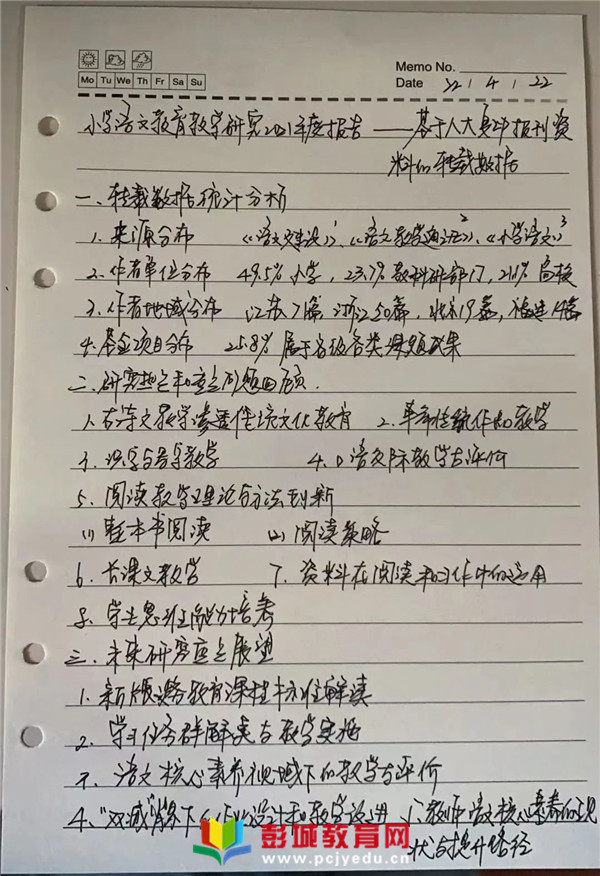 Memo No.
Mo Tu We Th Fr Sa Su
Date 22 / 4 / 22
小学语文教育教学研究2021年度报告——基于人大复印报刊资
料的转载数据
一、转载数据统计分析
1. 来源分布 《语文建设》1、《语文教学通讯》2、《小学语文》3
2. 作者单位分布 49.5% 小学, 23.7% 教科研部门, 21.6% 高校
3. 作者地域分布 江苏71篇 浙江50篇, 北京19篇, 福建14篇
4. 基金项目分布 25.8% 属于各级各类课题成果
二、研究热点和重点问题回顾.
1. 古诗文教学渗透传统文化教育 2. 革命传统作品教学
3. 识字与写字教学 4. 口语交际教学与评价
5. 阅读教学理论与方法创新
(1) 整本书阅读 (2) 阅读策略
6. 长课文教学 7. 资料在阅读和习作中的运用
8. 学生思维能力培养
三、未来研究重点展望
1. 新版义务教育课程标准解读
2. 学习任务群解读与教学实施
3. 语文核心素养视域下的教学与评价
4. "双减"背景下作业设计和教学改进 5. 教师语文核心素养的现
状与提升路径
彭城教育网
www.pcjyedu.cn